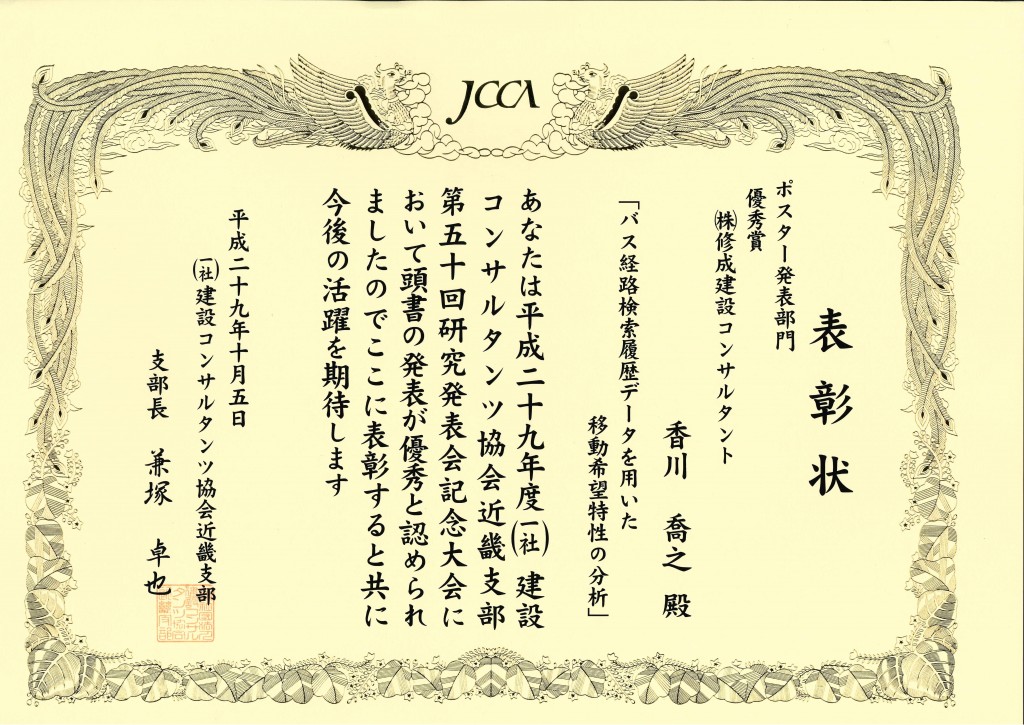 JCCA
表彰状
ポスター発表部門
優秀賞
㈱修成建設コンサルタント
香川 喬之 殿
「バス経路検索履歴データを用いた
移動希望特性の分析」
あなたは平成二十九年度(一社)建設
コンサルタンツ協会近畿支部
第五十回研究発表会記念大会に
おいて頭書の発表が優秀と認められ
ましたのでここに表彰すると共に
今後の活躍を期待します
平成二十九年十月五日
(一社)建設コンサルタンツ協会近畿支部
支部長 兼塚 卓也